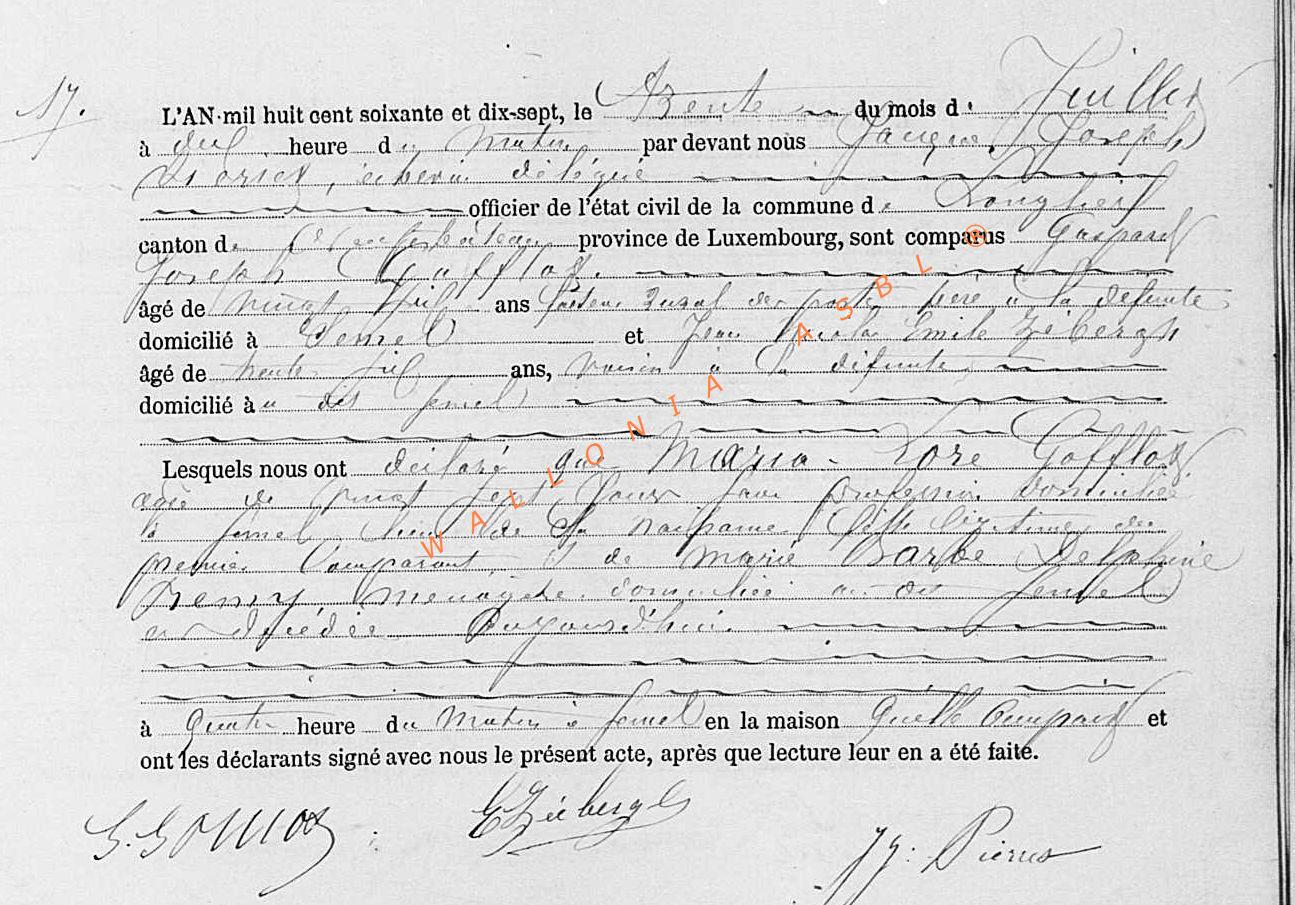 17.
L'AN mil huit cent soixante et dix-sept, le Trente du mois de Juillet
à dix heure du Matin par devant nous Jacques Joseph
échevin délégué
officier de l'état civil de la commune de Longlier
canton de Neufchâteau province de Luxembourg, sont comparus Gaspard
Joseph Gofflot
âgé de vingt ans facteur rural des postes père à la défunte
domicilié à Semel et Jean Nicolas Emile
âgé de trente ans, voisin à la défunte
domicilié à au dit Semel
Lesquels nous ont déclaré que Maria Gofflot
agée de vingt sept Jours sans profession domiciliée
à Semel lieu de sa naissance fille légitime du
premier Comparant, et de Marie Barbe Delphine
Remy, menagère domiciliée au dit Semel
est décédée aujourd'hui
à quatre heure du Matin à Semel en la maison qu'elle occupait et
ont les déclarants signé avec nous le présent acte, après que lecture leur en a été faite.
G. Gofflot
JJ. Pierret
WALLONIA ASBL ®